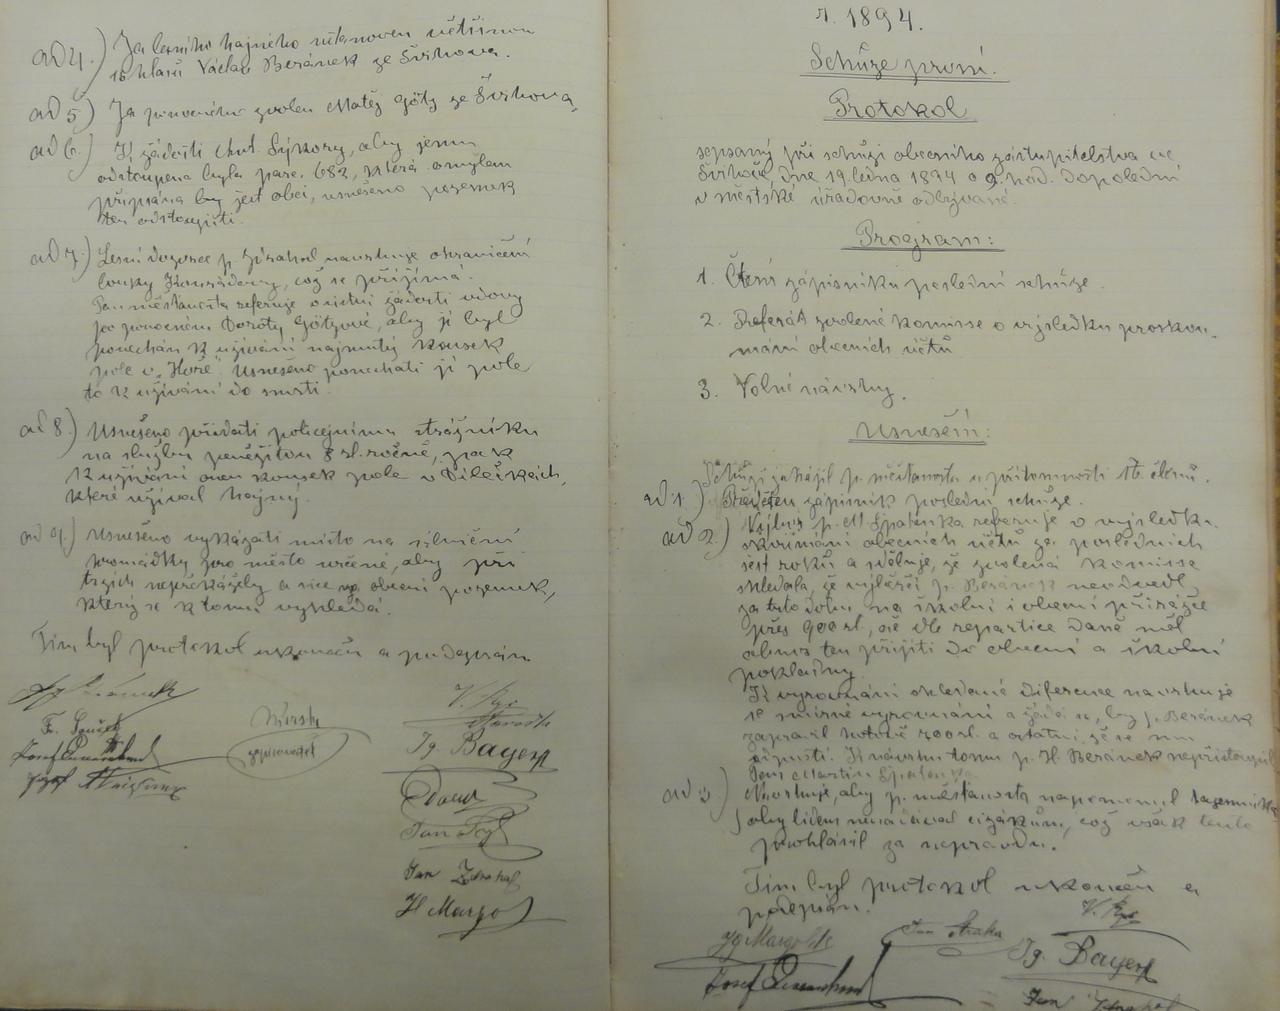 ad 4.) Za lesního hajného ustanoven většinou
16 hlasů Václav Beránek ze Švihova.
ad 5.) Za ponocného zvolen Matěj Götz ze Švihova.
ad 6.) K žádosti Ant. Sýkory, aby jemu
odstoupena byla parc. 682, která omylem
připsána by jest obci, usnešeno pozemek
ten odstoupiti.
ad 7.) Lesní dozorce p. Zdrahal navrhuje ohraničení
louky, což se přijímá.
Pan měšťanosta referuje o ústní žádosti vdovy
po ponocném Doroty Götzové, aby jí byl
ponechán k užívání najmutý kousek
pole v „Hoře“. Usnešeno ponechati jí pole
to k užívání do smrti.
ad 8.) Usnešeno přidati policejnímu strážníku
na službu peněžitou 8 zl. ročně, pak
k užívání onen kousek pole v Dílečkách,
které užíval hajný.
ad 9.) Usnešeno vykázati místo na silniční
hromádky pro město určené, aby při
trzích nepřekážely a sice obecní pozemek,
který se k tomu vyhledá.
Tím byl protokol ukončen a podepsán
V. Kpc
F. Souček
starosta
zpravodatel
Ig. Bayerl
Josef
Josef
Jan
Jan Zdrahal
H Margo
r. 1894.
Schůze první.
Protokol
sepsaný při schůzi obecního zastupitelstva ve
Švihově, dne 19. ledna 1894 o 9. hod. dopolední
v městské úřadovně odbývané.
Program:
1. Čtení zápisníku poslední schůze.
2. Referát zvolené komisse o výsledku proskou-
mání obecních účtů
3. Volné návrhy.
Usnešení:
Schůzi zahájil p. měšťanosta u přítomnosti 16. členů.
ad 1.) Přečten zápisník poslední schůze.
ad 2.) Výbor p. M. Špalenka referuje o výsledku
zkoumání obecních účtů za posledních
šest roků a sděluje, že zvolená komisse
shledala, že výběrčí p. Beránek neodvedl
za tuto dobu na školní i obecní přirážce
přes 900 zl, než dle repartice daně měl
obnos ten přijíti do obecní a školní
pokladny.
K vyrovnání shledané diference navrhuje
se smírné vyrovnání a žádá se, by p. Beránek
zapravil hotově 200 zl. a ostatní že se mu
odpustí. K návrhu tomu p. H. Beránek nepřistoupil
Pan Martin Špalenka
ad 3.) Navrhuje, aby p. měšťanosta napomenul tajemníka
aby lidem nenadával cizákům, což však tento
prohlásil za nepravdu.
Tím byl protokol ukončen a
podepsán.
V. Kpc
Jan Straka
Ig. Bayerl
Josef
Jan Zdrahal